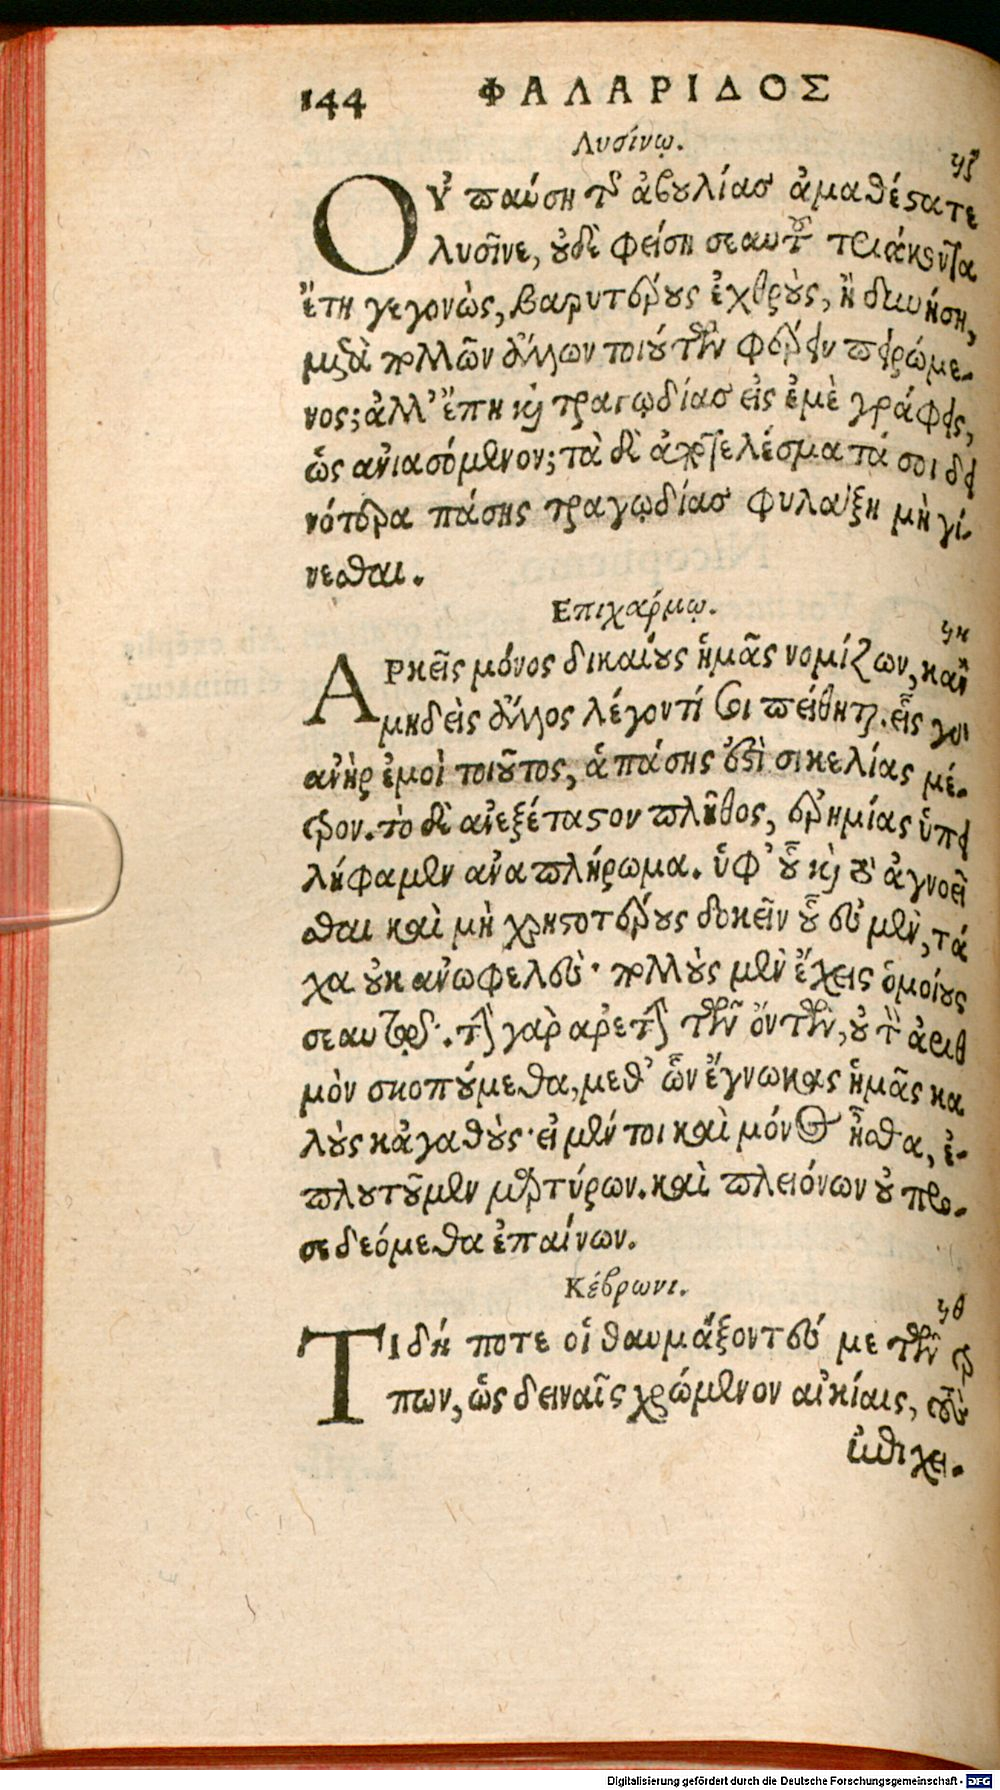 144 ΦΑΛΑΡΙΔΟΣ
Λυσίνῳ.
ϟζ
Οὐ παύσῃ τῆς ἀβουλίας ἀμαθέστατε
λυσῖνε, οὐδὲ φείσῃ σεαυτοῦ τριάκοντα
ἔτη γεγονὼς, βαρυτέρους ἐχθροὺς, ἢ δυνήσῃ,
μετὰ πολλῶν ἄλλων τοιούτων φέρειν πειρώμε-
νος; ἀλλ' ἔπη καὶ τραγῳδίας εἰς ἐμὲ γράφεις,
ὡς ἀνιασόμενον; τὰ δὲ ἀποτελέσματά σοι δει
νότερα πάσης τραγῳδίας φυλάξῃ μὴ γί-
νεσθαι.
Επιχάρμῳ.
ϟη
Αρκεῖς μόνος δικαίους ἡμᾶς νομίζων, κἂν
μηδεὶς ἄλλος λέγοντί σοι πείθηται. εἷς γὰρ
ἀνὴρ ἐμοὶ τοιοῦτος, ἁπάσης ἐστὶ σικελίας μέ-
τρον. τὸ δὲ ἀνεξέταστον πλῆθος, ἐρημίας ὑπει
λήφαμεν ἀναπλήρωμα. ὑφ' οὗ καὶ τὸ ἀγνοεῖ
σθαι καὶ μὴ χρηστοτέρους δοκεῖν οὗ ἐσμὲν, τά
χα οὐκ ἀνωφελές· πολλοὺς μὲν ἔχεις ὁμοίους
σεαυτῷ. τὴν γὰρ ἀρετὴν τῶν ὄντων, οὐ τὸν ἀριθ
μὸν σκοπούμεθα, μεθ' ὧν ἔγνωκας ἡμᾶς κα
λοὺς κἀγαθούς· εἰ μέν τοι καὶ μόνος ἦσθα, ἐ-
πλουτοῦμεν μαρτύρων. καὶ πλειόνων οὐ προσ-
δεόμεθα ἐπαίνων.
Κέβρωνι.
ϟθ
Τί δή ποτε οἱ θαυμάζοντές με τῶν τρό
πων, ὡς δειναῖς χρώμενον αἰκίαις,